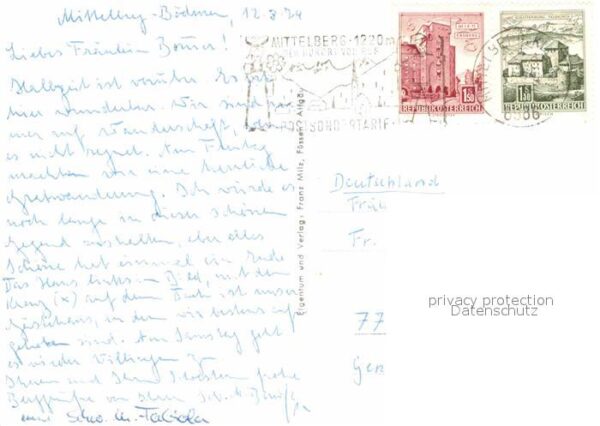 Mittelberg-Bödmen, 12.8.74
Liebes Fräulein
Halbzeit ist vorüber. Es
hier wunderbar. Wir sind
mer auf Wanderschaft,
es nicht regnet. Am Freitag
machten wir eine herrliche
Gratwanderung. Ich würde es
noch lange in dieser schönen
Gegend aushalten, aber alles
Schöne hat einmal ein Ende
Das Haus links im Bild, mit dem
Kreuz (x) auf dem Dach ist unser
Gästehaus, in dem wir bestens auf-
gehoben sind. Am Samstag geht
es wieder Villingen zu
Ihnen und Ihren Schwestern frohe
Berggrüße von Ihrer
MITTELBERG · 1220 m
POSTSONDERTARIF
1.50
REPUBLIK ÖSTERREICH
REPUBLIK ÖSTERREICH
Eigentum und Verlag: Franz Milz, Füssen, Allgäu
Deutschland
Fräu
Fr.
privacy protection
Datenschutz
77
Ger